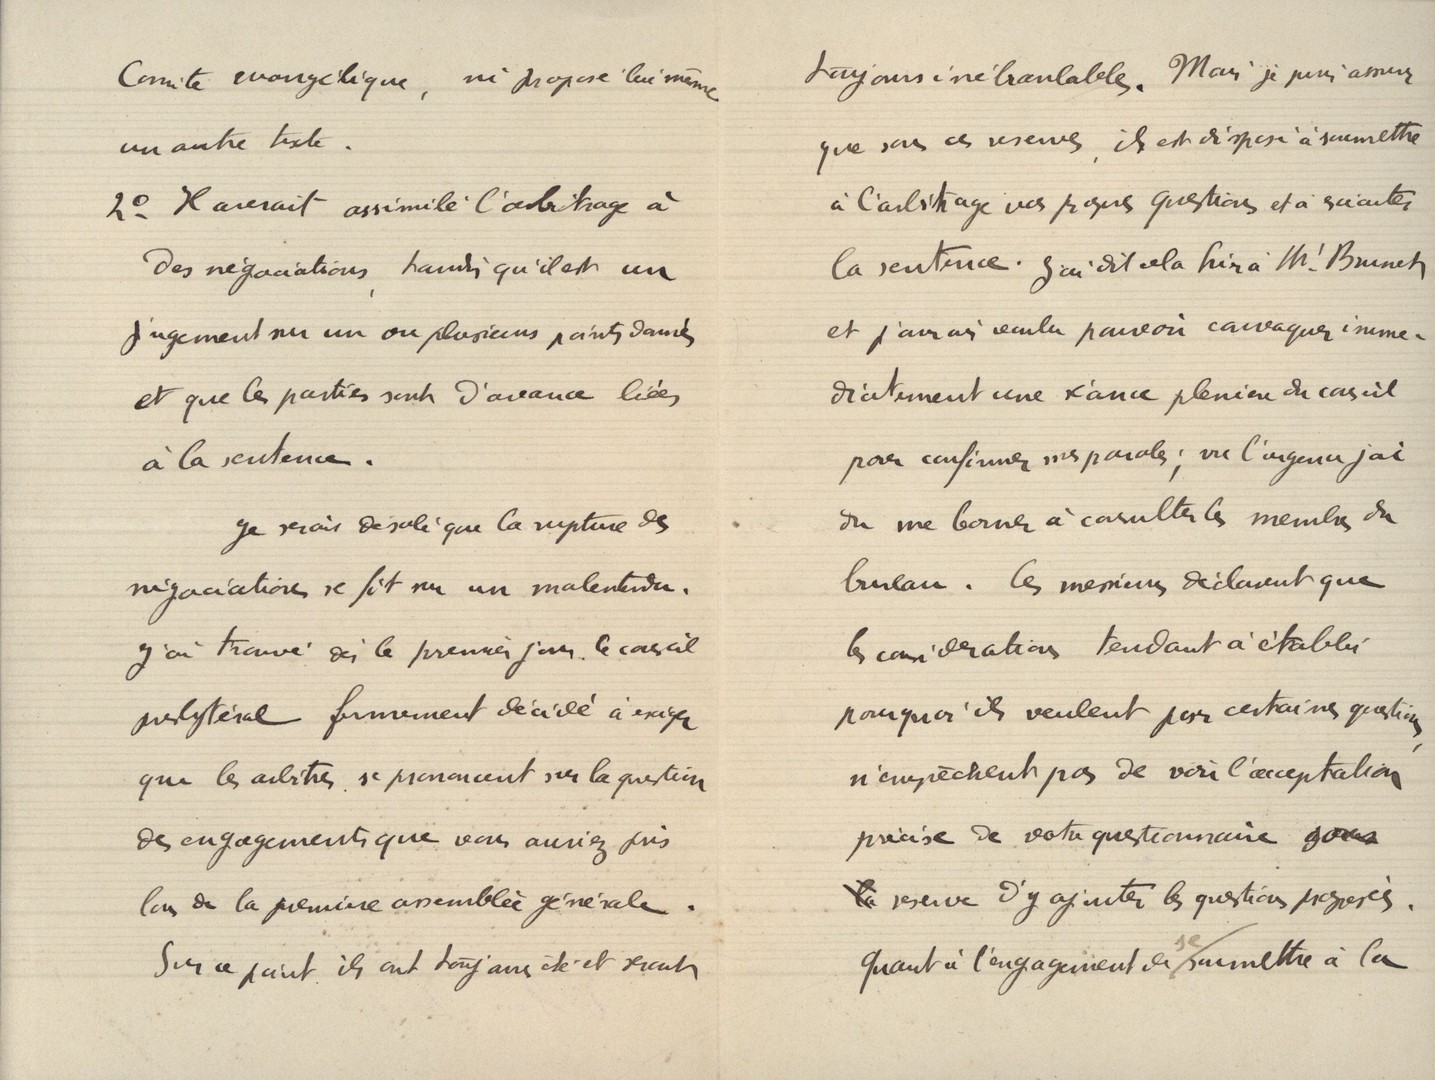 Comité evangélique, ni proposé lui même
un autre texte.
2º Il aurait assimilé l'arbitrage à
des négociations, tandis qu'il est un
jugement sur un ou plusieurs points donnés
et que les parties sont d'avance liées
à la sentence.
Je serais désolé que la rupture des
négociations se fit sur un malentendu.
J'ai trouvé dès le premier jour le conseil
presbytéral fermement décidé à exiger
que les arbitres se prononcent sur la question
des engagements que vous auriez pris
lors de la première assemblée générale.
Sur ce point ils ont toujours été et seront
toujours inébranlables. Mais je puis assurer
que sous ces reserves, ils est disposé à soumettre
à l'arbitrage vos propres questions et à exécuter
la sentence. J'ai dit cela hier à Mr. Brunet
et j'aurais voulu pouvoir convoquer immé-
diatement une séance plenière du conseil
pour confirmer mes paroles; vu l'urgence j'ai
du me borner à consulter les membres du
bureau. Ces messieurs déclarent que
les considérations tendant à établir
pourquoi ils veulent poser certaines questions,
n'empêchent pas de voir l'acceptation
précise de votre questionnaire sous
la reserve d'y ajouter les questions proposées.
Quant à l'engagement de se soumettre à la